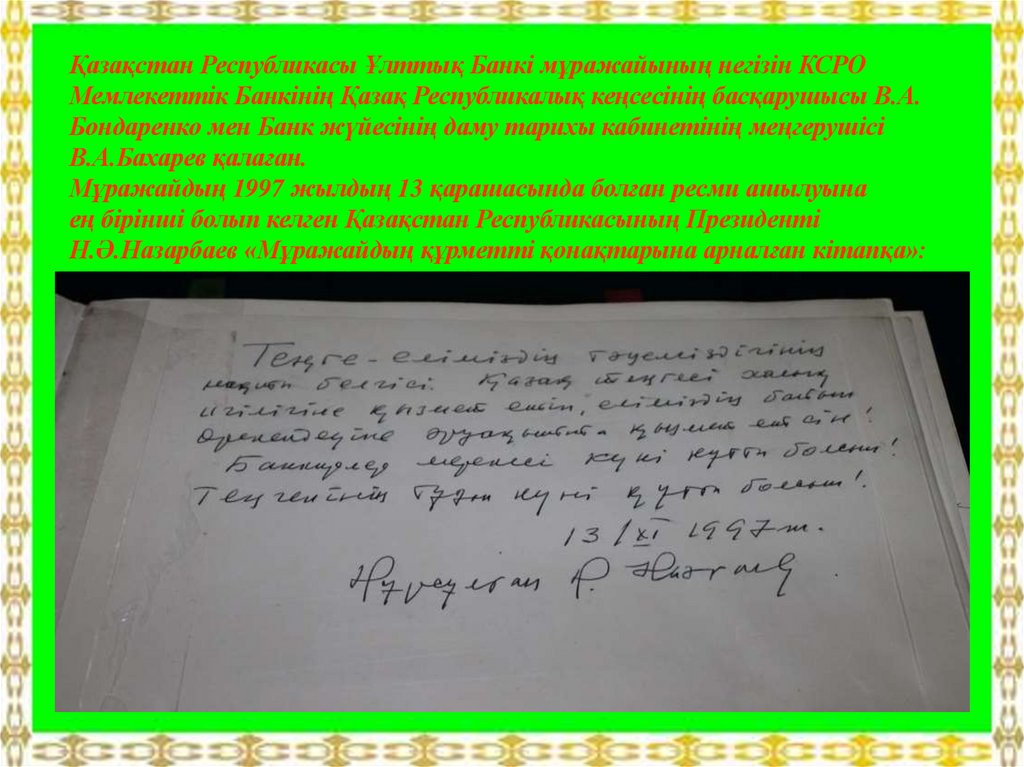 Қазақстан Республикасы Ұлттық Банкі мұражайының негізін КСРО
Мемлекеттік Банкінің Қазақ Республикалық кеңсесінің басқарушысы В.А.
Бондаренко мен Банк жүйесінің даму тарихы кабинетінің меңгерушісі
В.А.Бахарев қалаған.
Мұражайдың 1997 жылдың 13 қарашасында болған ресми ашылуына
ең бірінші болып келген Қазақстан Республикасының Президенті
Н.Ә.Назарбаев «Мұражайдың құрметті қонақтарына арналған кітапқа»:
Теңге - еліміздің тәуелсіздігінің
белгісі. Қазақ теңгесі халық
игілігіне қызмет етіп, еліміздің
қызмет етсін!
мерекесі күні құтты болсын!
Теңгенің туған күні құтты болсын!
13/XI 1997ж.